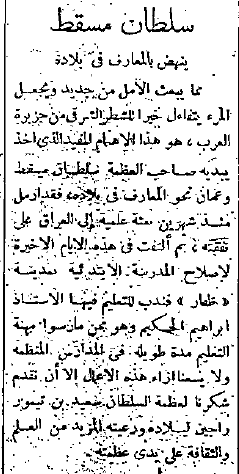 سلطان مسقط
ينهض بالمعارف في بلاده
مما يبعث الأمل من جديد ويجعل
المرء يتفاءل خيرا للشطر الشرقي من جزيرة
العرب، هو هذا الاهتمام المفيد الذي اخذ
يبديه صاحب العظمة سلطان مسقط
وعمان نحو المعارف في بلاده، فقد ارسل
منذ شهرين بعثة علمية إلى العراق على
نفقته، ثم التفت في هذه الايام الاخيرة
لاصلاح المدرسة الابتدائية بمدينة
« ظفار » فندب للتعليم فيها الاستاذ
ابراهيم الحكيم وهو ممن مارسوا مهنة
التعليم مدة طويلة في المدارس المنظمة
ولا يسعنا ازاء هذه الاعمال الا أن نقدم
شكرنا لعظمة السلطان سعيد بن تيمور
راجين لبلاده ورعيته المزيد من العلم
والثقافة على يدي عظمته.